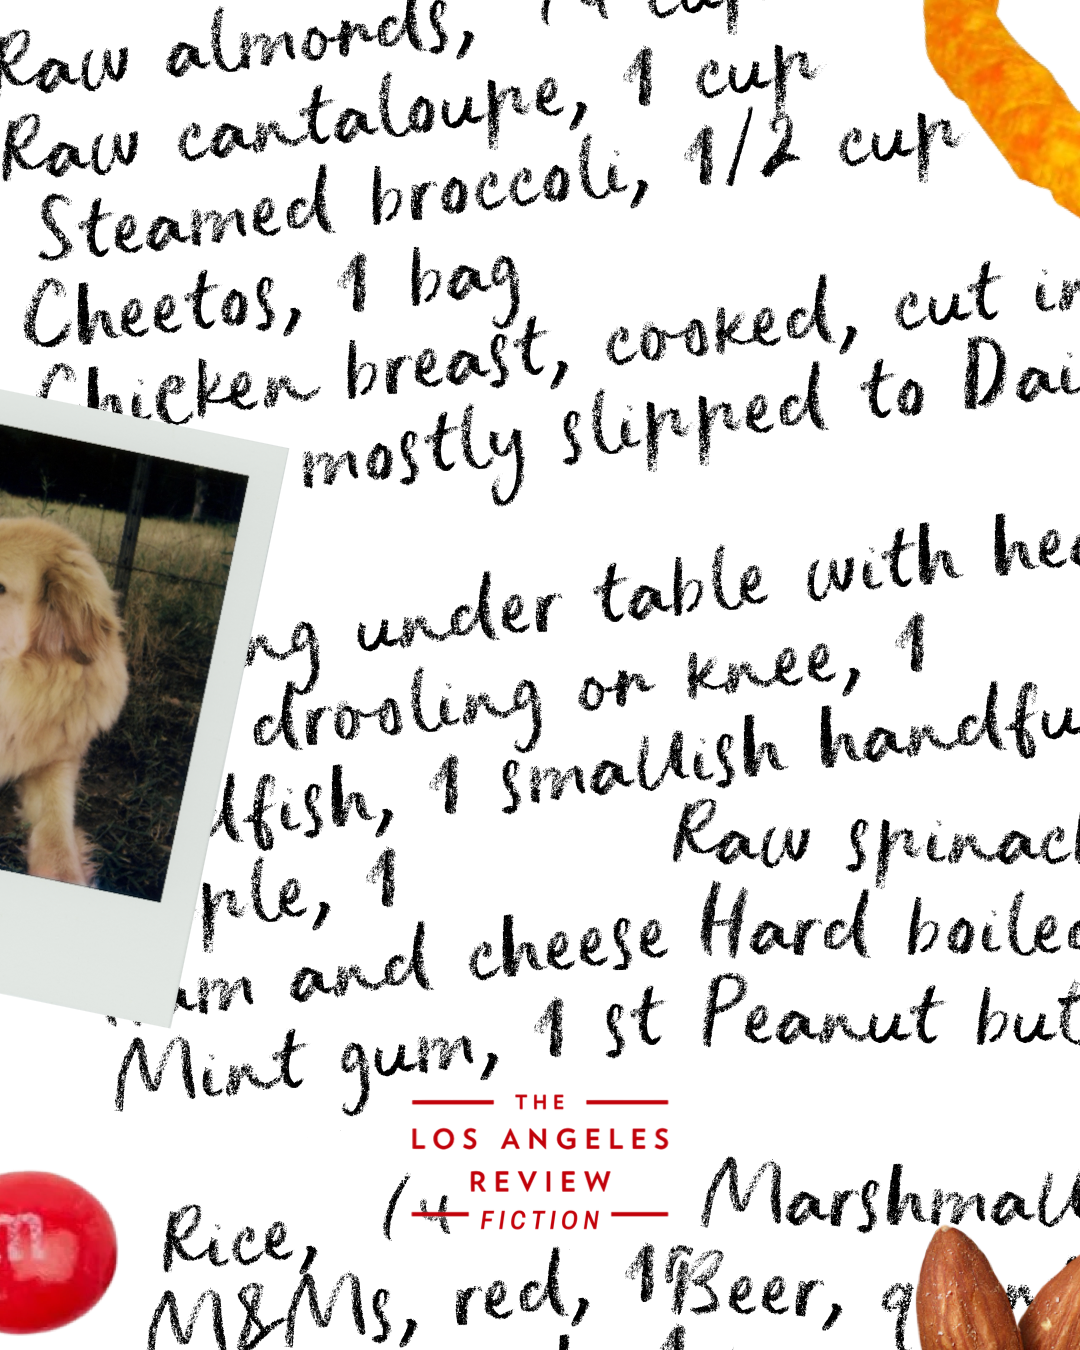 Raw almonds, 1/4 cup
Raw cantaloupe, 1 cup
Steamed broccoli, 1/2 cup
Cheetos, 1 bag
Chicken breast, cooked, cut in
mostly slipped to Dai
ng under table with hea
drooling on knee, 1
dfish, 1 smallish handfu
Raw spinach
ple, 1
am and cheese Hard boiled
Mint gum, 1 st Peanut but
THE
LOS ANGELES
REVIEW
FICTION
Rice, 1/4 Marshmall
M&Ms, red, 1 Beer,